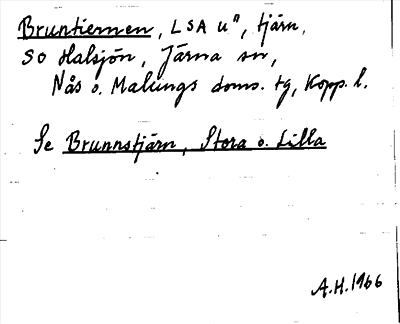 Bruntiernen, LSA uⁿ, tjärn,
SO Halsjön, Järna sn,
Nås o. Malungs doms. tg, Kopp. l.
Se Brunnstjärn, Stora o. Lilla
A.H. 1966